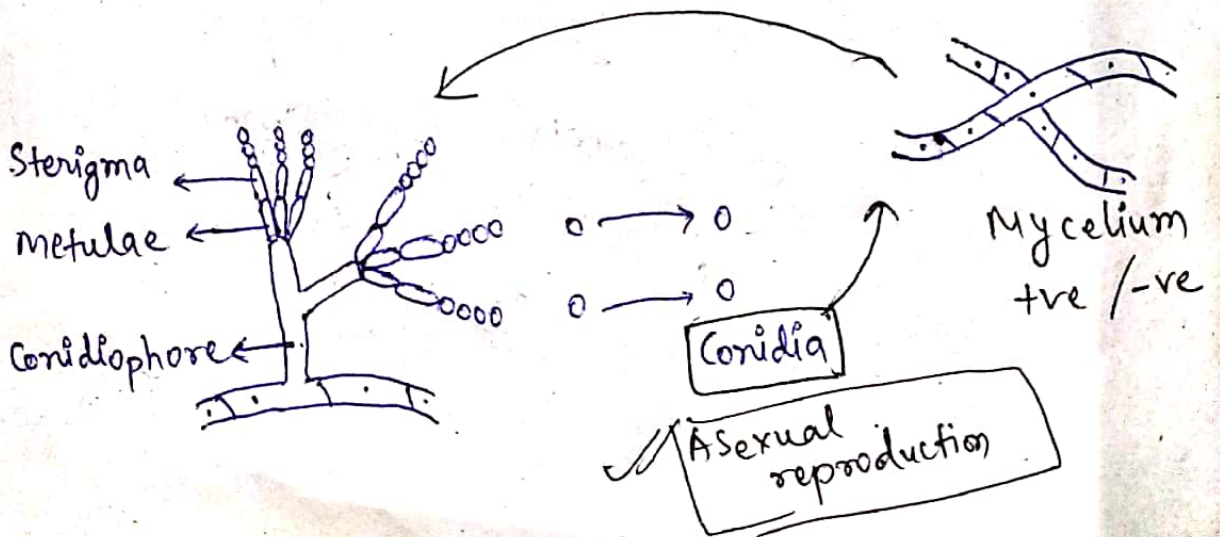 Sterigma
Metulae
Conidiophore
Conidia
Asexual
reproduction
Mycelium
+ve /-ve